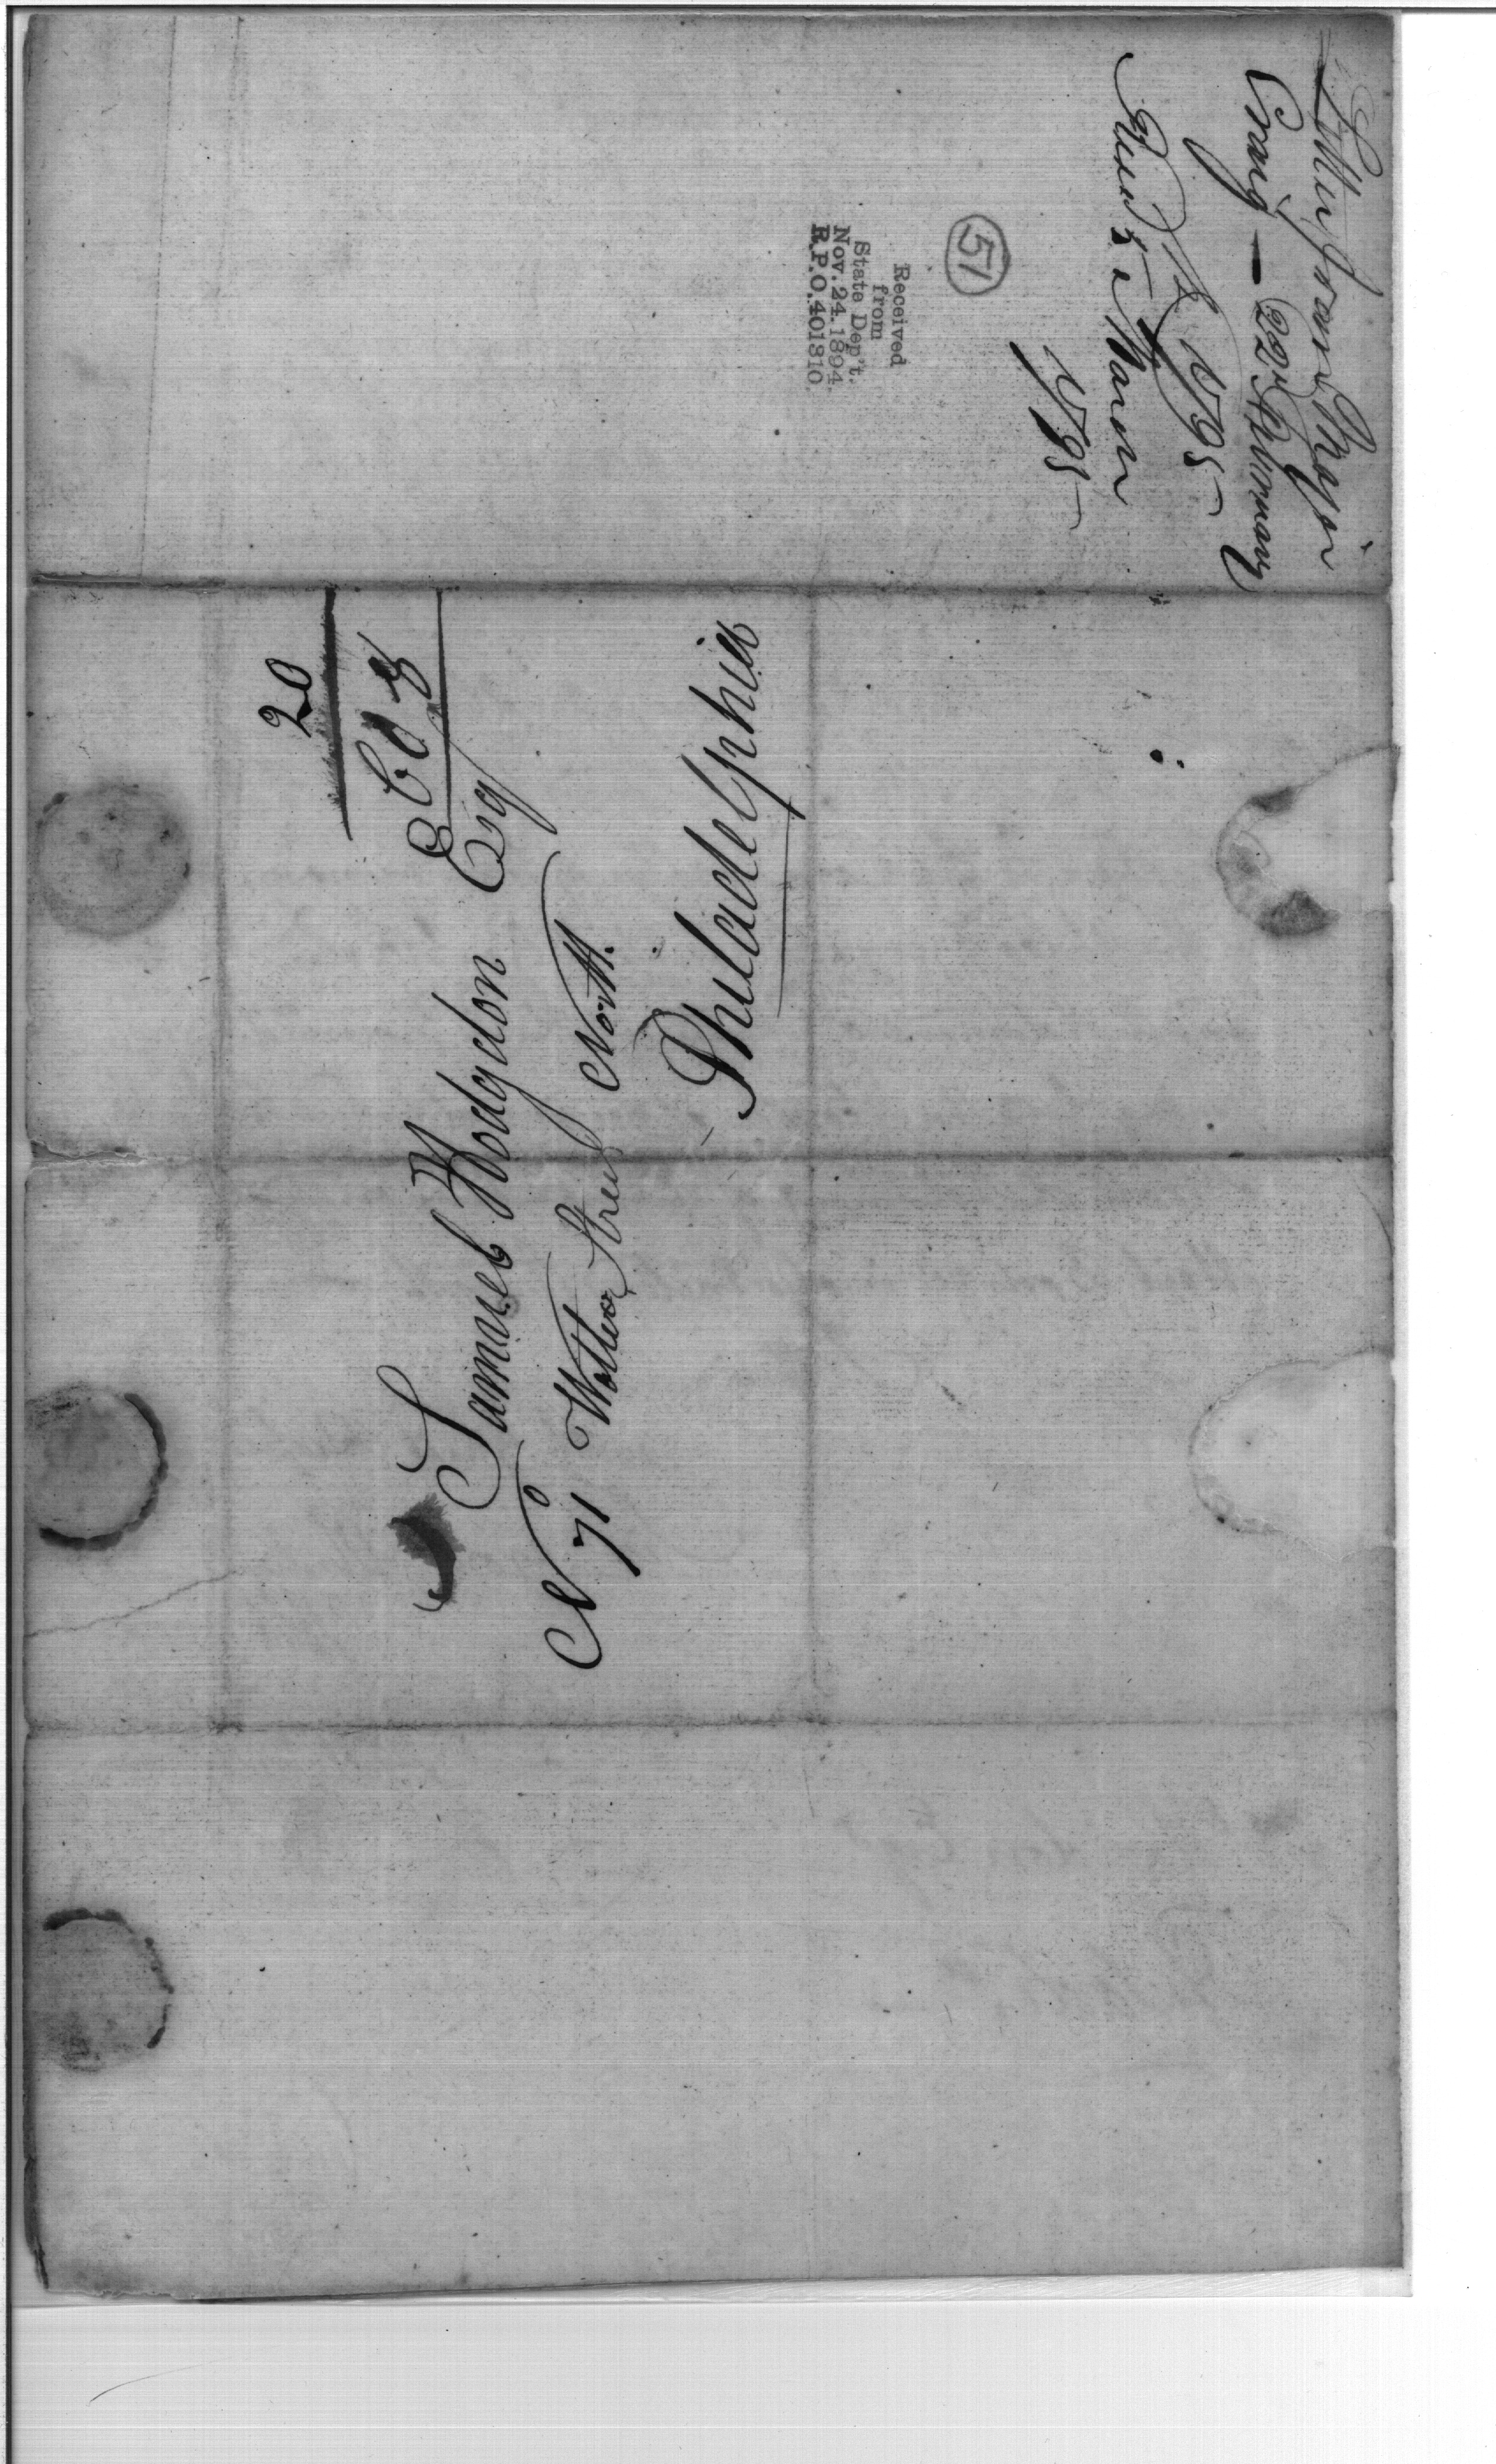 Letter from Major
Craig — 22d February
1795 —
Recd 5 March
1795 —
51
Received
from
State Dep't.
Nov. 24. 1894.
R.P.O. 401310.
20
Samuel Hodgdon Esq
No 71 Water Street North
Philadelphia